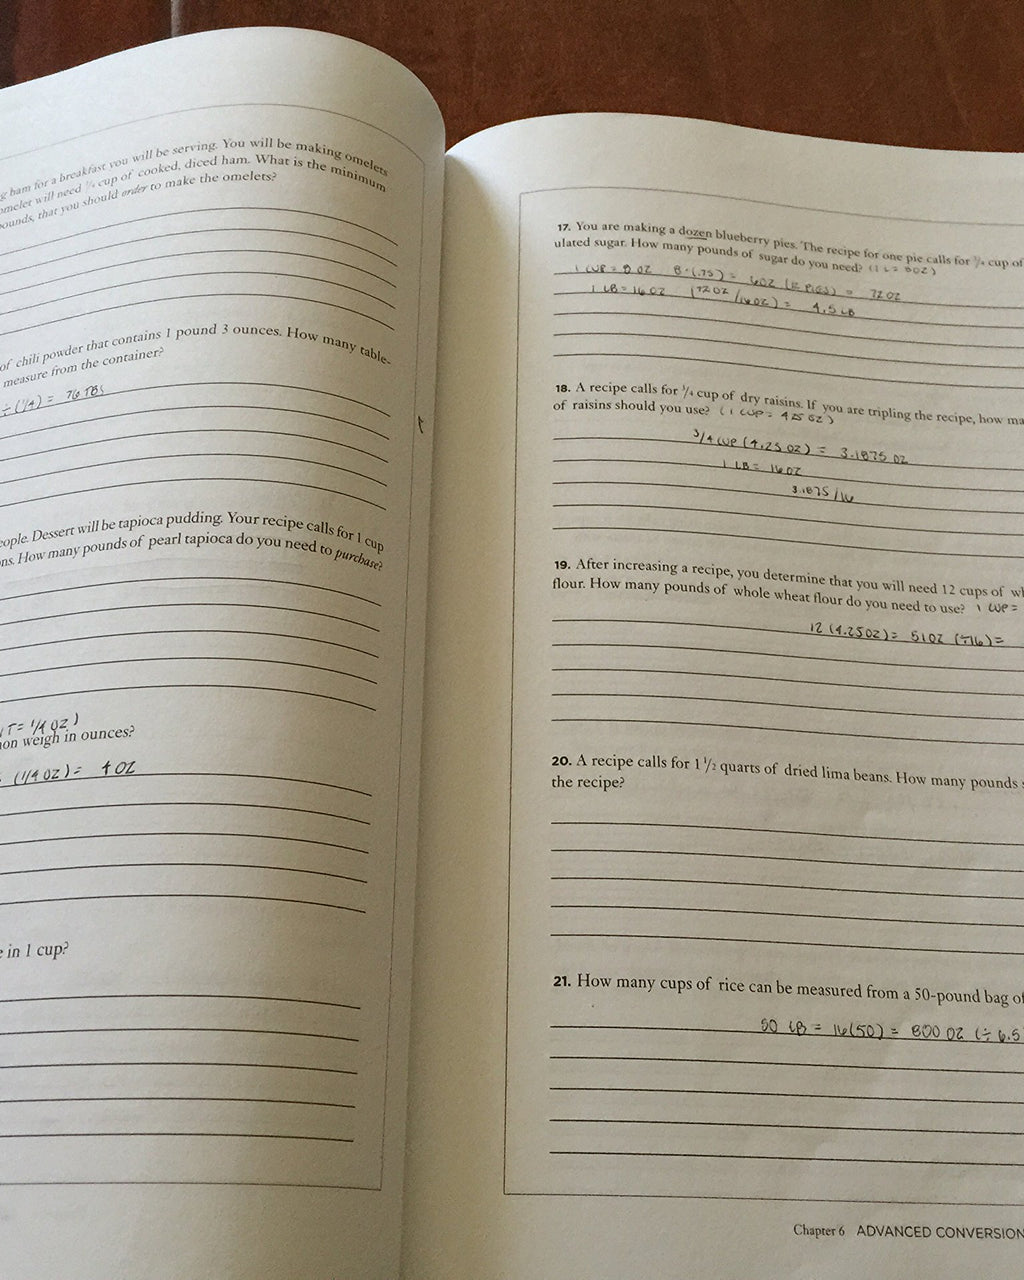 g ham for a breakfast you will be serving. You will be making omelets
omelet will need 1/4 cup of cooked, diced ham. What is the minimum
ounds, that you should order to make the omelets?
of chili powder that contains 1 pound 3 ounces. How many table-
measure from the container?
÷ (1/4) = 76 TBS
eople. Dessert will be tapioca pudding. Your recipe calls for 1 cup
ns. How many pounds of pearl tapioca do you need to purchase?
1 T = 1/4 OZ )
on weigh in ounces?
(1/4 OZ) = 4 OZ
e in 1 cup?
17. You are making a dozen blueberry pies. The recipe for one pie calls for 3/4 cup of
ulated sugar. How many pounds of sugar do you need? (1 C = 8OZ)
1 CUP = 8 OZ 8·(.75) = 6OZ (12 PIES) = 72 OZ
1 LB = 16 OZ (72 OZ /16 OZ) = 4.5 LB
18. A recipe calls for 1/4 cup of dry raisins. If you are tripling the recipe, how ma
of raisins should you use? (1 CUP = 4.25 OZ)
3/4 CUP (4.25 OZ) = 3.1875 OZ
1 LB = 16 OZ
3.1875 /16
19. After increasing a recipe, you determine that you will need 12 cups of wh
flour. How many pounds of whole wheat flour do you need to use? 1 CUP =
12 (4.25OZ) = 51OZ (÷16) =
20. A recipe calls for 1 1/2 quarts of dried lima beans. How many pounds s
the recipe?
21. How many cups of rice can be measured from a 50-pound bag of
50 LB = 16(50) = 800 OZ (÷ 6.5
Chapter 6 ADVANCED CONVERSION